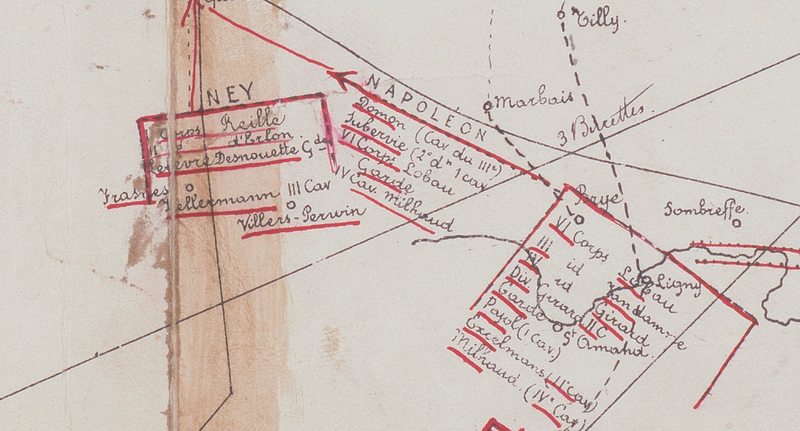 Tilly.
NEY
NAPOLEON
Marbais
3 Burettes.
Corps Reille
d'Erlon.
Lefèvre Desnouette Gde
Frasnes
Kellermann III Cav
Villers-Perwin
Domon (Cav du IIIe)
Subervie (2e d° 1 cav
VI Corps Lobau
Garde
IV Cav. Milhaud
Brye
Sombreffe.
VI Corps
Lobau
III id
Vandamme
IV id
Div Girard IIC
Girard
Garde
Ligny
St Amand.
Pajol (1 Cav)
Excelmans (IIe Cav)
Milhaud. (IVe Cav)